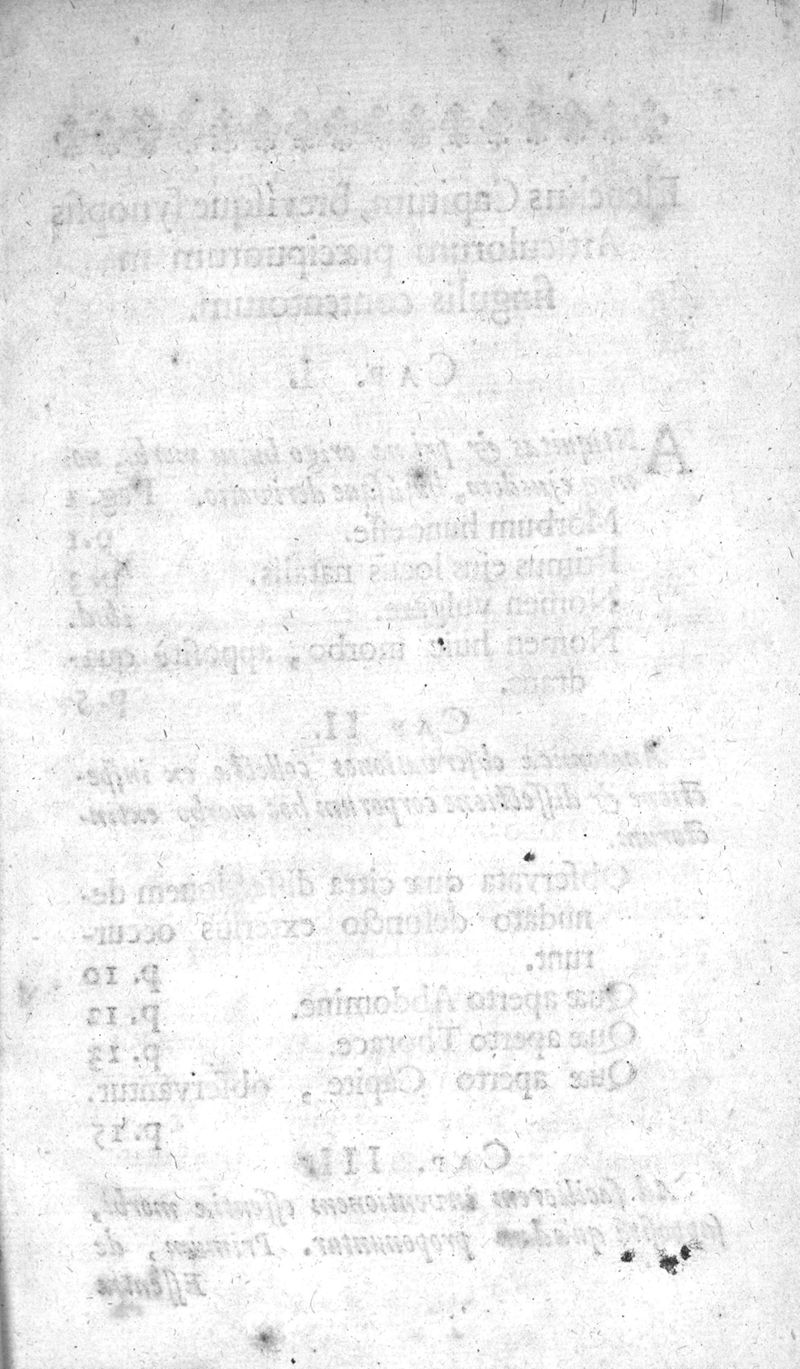 Elenchus Capitum, brevisque synopsis
Articulorum præcipuorum in
singulis contentorum.
CAP. I.
Antiquitas & prima origo hujus morbi, no-
ejusdem, derivatio. Pag. 1
Morbum hunc esse. p. 1
Primus ejus locus natalis. p. 3
Nomen vulgare. ibid.
Nomen huic morbo, appositè qua-
drans. p. 5
CAP II.
Anatomicæ observationes collectæ ex inspe-
ctione & dissectione corporum hoc morbo extin-
ctorum.
Observata quæ citra dissectionem de-
nudato defuncto exterius occur-
runt. p. 10
Quæ aperto Abdomine. p. 12
Quæ aperto Thorace. p. 13
Quæ aperto Capite, observantur.
p. 15
CAP. III.
Ad faciliorem inventionem essentiæ morbi,
quædam proponuntur. Primum, de
Essentia